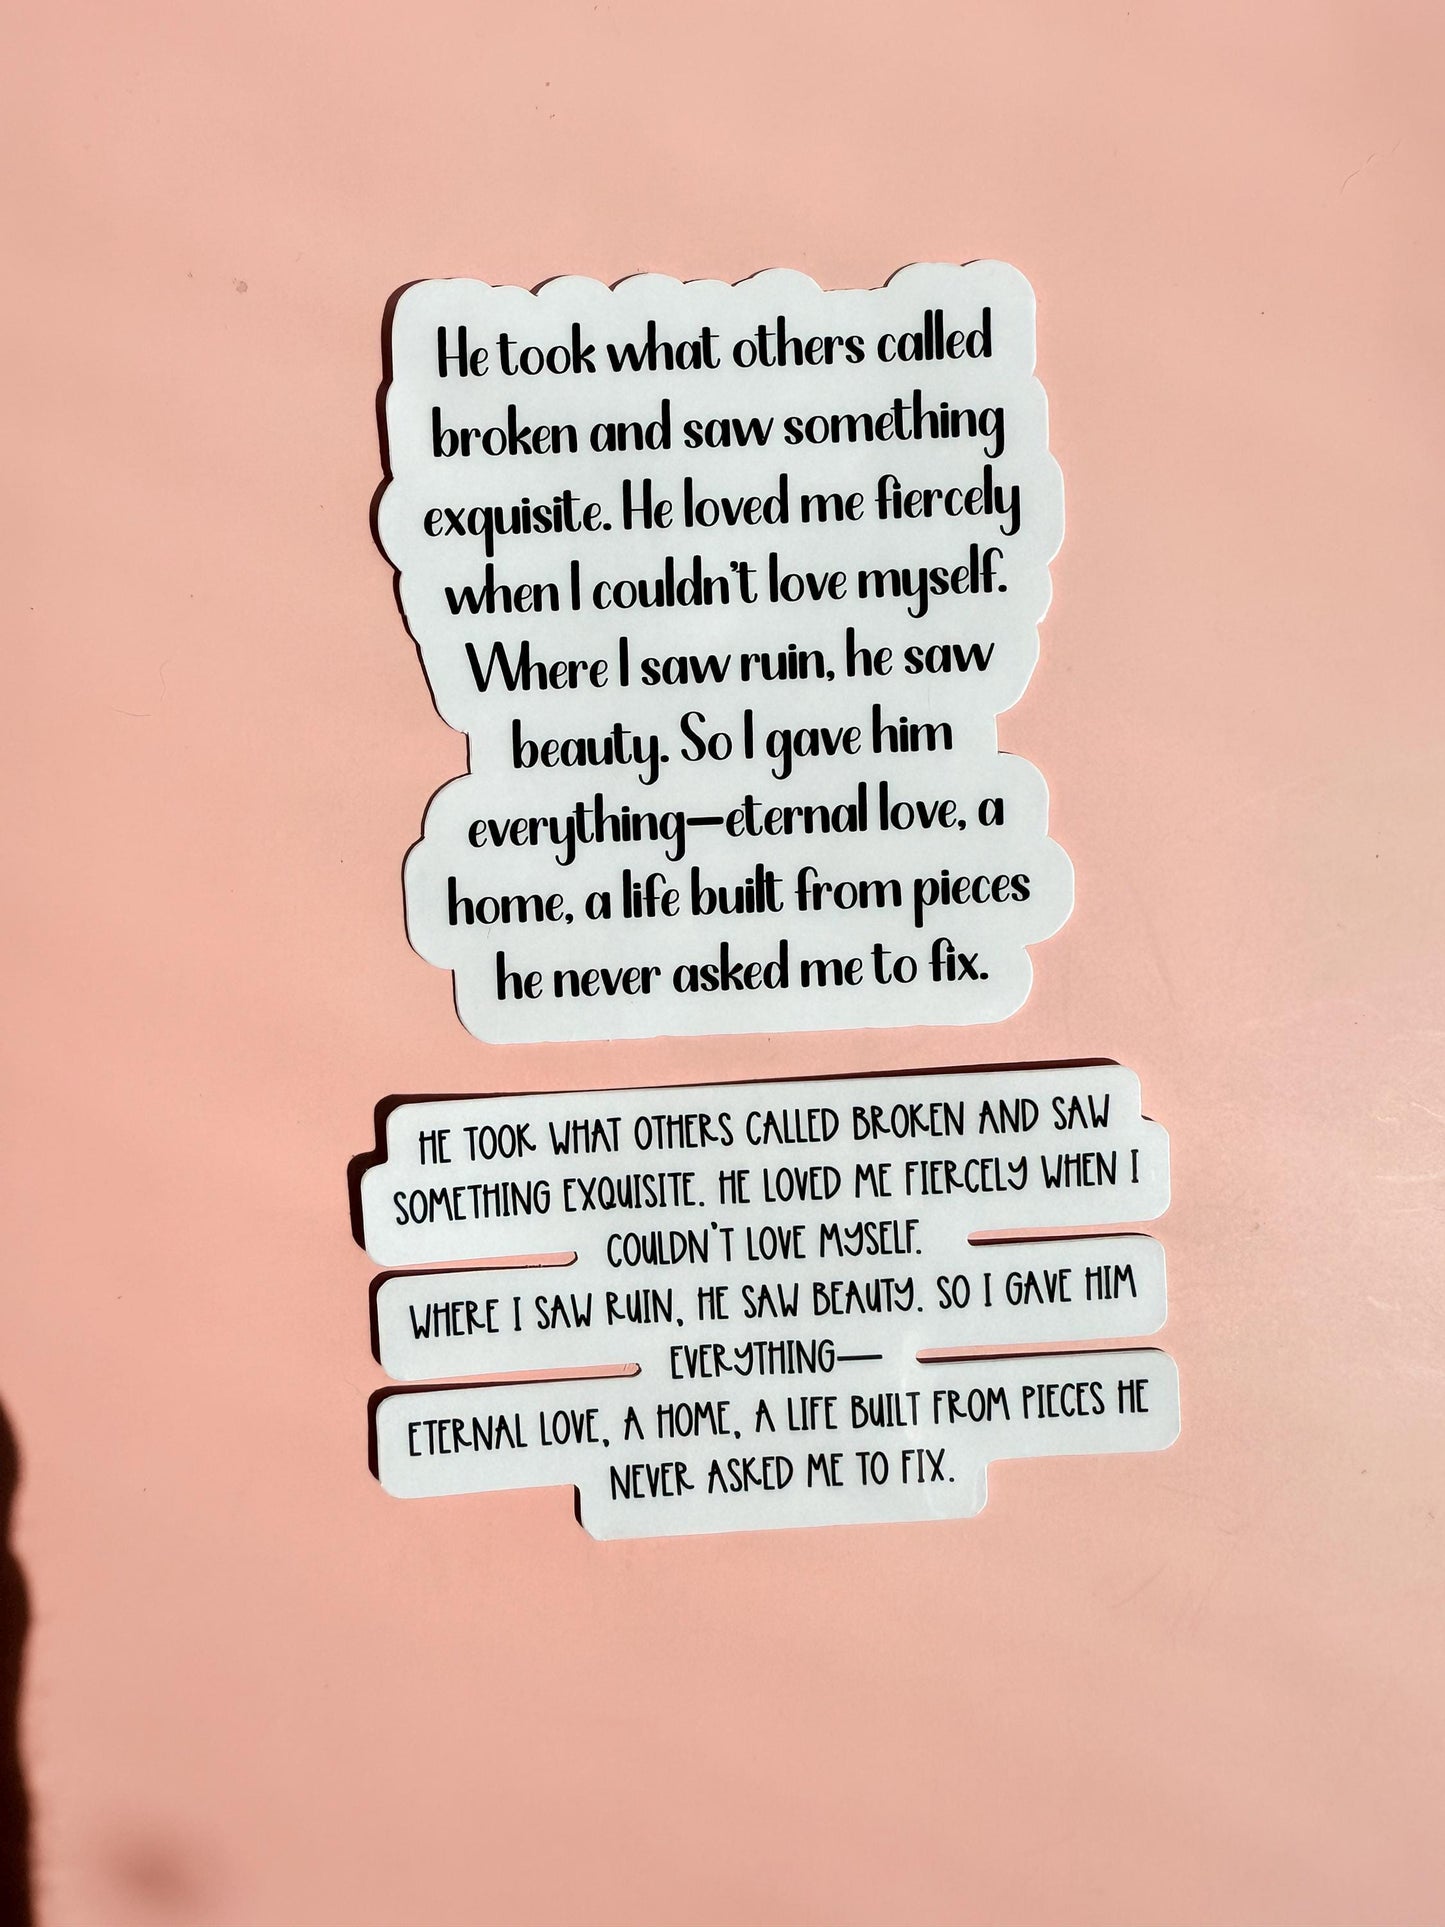 He took what others called
broken and saw something
exquisite. He loved me fiercely
when I couldn't love myself.
Where I saw ruin, he saw
beauty. So I gave him
everything—eternal love, a
home, a life built from pieces
he never asked me to fix.
HE TOOK WHAT OTHERS CALLED BROKEN AND SAW
SOMETHING EXQUISITE. HE LOVED ME FIERCELY WHEN I
COULDN'T LOVE MYSELF.
WHERE I SAW RUIN, HE SAW BEAUTY. SO I GAVE HIM
EVERYTHING—
ETERNAL LOVE, A HOME, A LIFE BUILT FROM PIECES HE
NEVER ASKED ME TO FIX.